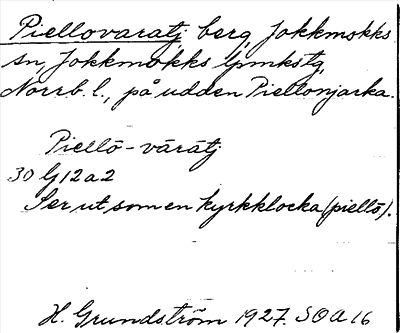 Piellovaratj, berg, Jokkmokks
sn, Jokkmokks lpmkstg,
Norrb. l., på udden Piellonjarka.
Piellō-vārātj
30 G12a2
Ser ut som en kyrkklocka (piellō).
H. Grundström 1927. SOA 16